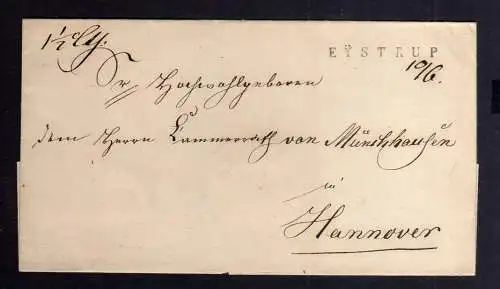 EŸSTRUP
10/6.
Sr. Hochwohlgeboren
dem Herrn Cammerrath von Münchhausen
in
Hannover